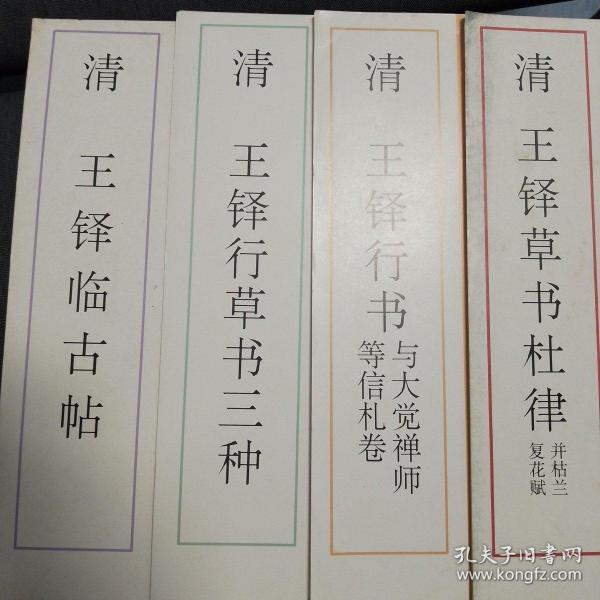 清
王铎临古帖
清
王铎行草书三种
清
王铎行书
与大觉禅师
等信札卷
清
王铎草书杜律
并枯兰
复花赋
孔夫子旧书网
www.kongfz.com